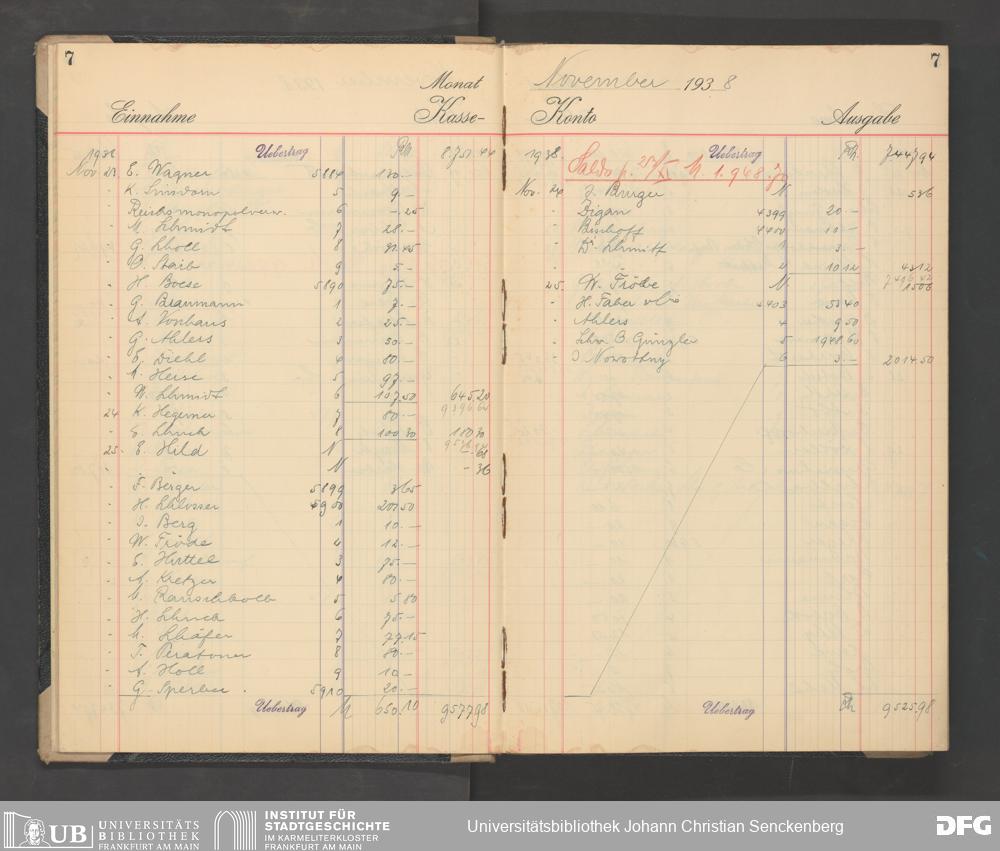 7
Monat
Einnahme Kasse-
1938 Uebertrag Rm 8.751.44
Nov. 23. E. Wagner 5884 130.-
5 9.-
Reichsmonopolverw. 6 -.25
M. Schmidt 7 28.-
G. Scholl 8
O. Staib 9 5.-
H. Boese 5890 75.-
G. Braumann 1 7.-
A. Vonhaus 2 25.-
G. Ahlers 3 50.-
E. Diehl 4 80.-
A. Heise 5 97.-
W. Schmidt 6 107.50 645.20
9396.64
24 K. Hegerner 7 80.-
E. Schuch 8 100.30 180.30
25. E. Hild N
N -.36
F. Berger 5899 3.65
H. Schlosser 5900 201.50
J. Berg 1 10.-
W. Fröde 2 12.-
E. Hüttel 3 75.-
A. Kretzer 4 80.-
Rauschkolb 5 5.80
H. Schuch 6 75.-
M. Schäfer 7 77.15
T. Peratoner 8 80.-
A. Holl 9 10.-
G. Sperber 5910 20.-
Uebertrag M 650.10 9577.98
7
November 1938
Konto Ausgabe
1938. Uebertrag Rm. 7447.94
Saldo p. M. 1.948.70
Nov. 24 J. Burger N 5.36
Digan 4399 20.-
Bischoff 4400 10.-
Dr. Schmitt 1 3.-
2 10.12 43.12
7496.42
25. W. Fröbe N. 15.06
H. Faber 4403 53.40
Ahlers 4 9.50
B. Günzler 5 1948.60
J Nowottny 6 3.- 2014.50
Uebertrag Rm 9525.98
UB UNIVERSITÄTS
BIBLIOTHEK
FRANKFURT AM MAIN
INSTITUT FÜR
STADTGESCHICHTE
IM KARMELITERKLOSTER
FRANKFURT AM MAIN
Universitätsbibliothek Johann Christian Senckenberg
DFG